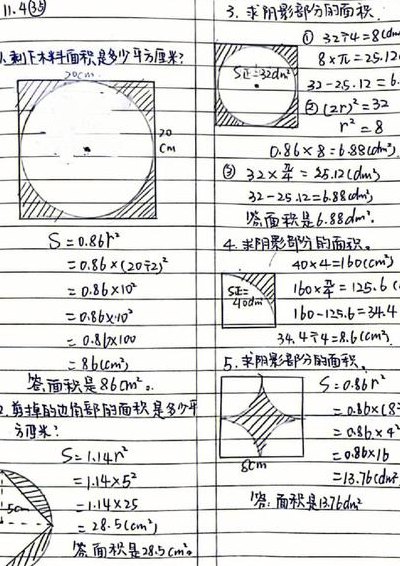 11.4(35)
1.剩下木料面积是多少平方厘米?
20cm
20
cm
S=0.86r²
=0.86×(20÷2)²
=0.86×10²
=0.86×10²
=0.86×100
=86(cm²)
答:面积是86cm²。
2.剪掉的边角部的面积是多少平
方厘米?
5cm
S=1.14r²
=1.14×5²
=1.14×25
=28.5(cm²)
答:面积是28.5cm²。
3.求阴影部分的面积.
S正=32dm²
① 32÷4=8(dm
8×π=25.12
32-25.12=6.
② (2r)²=32
r²=8
0.86×8=6.88(dm²)
③ 32×π/4=25.12(dm²)
32-25.12=6.88(dm²)
答:面积是6.88dm².
4.求阴影部分的面积。
S正=
40dm²
40×4=160(cm²)
160×π/4=125.6(
160-125.6=34.4
34.4÷4=8.6(cm²)
5.求阴影部分的面积.
8cm
S=0.86r²
=0.86×(8÷
=0.86×4²
=0.86×16
=13.76(dm²
答:面积是13.76dm²